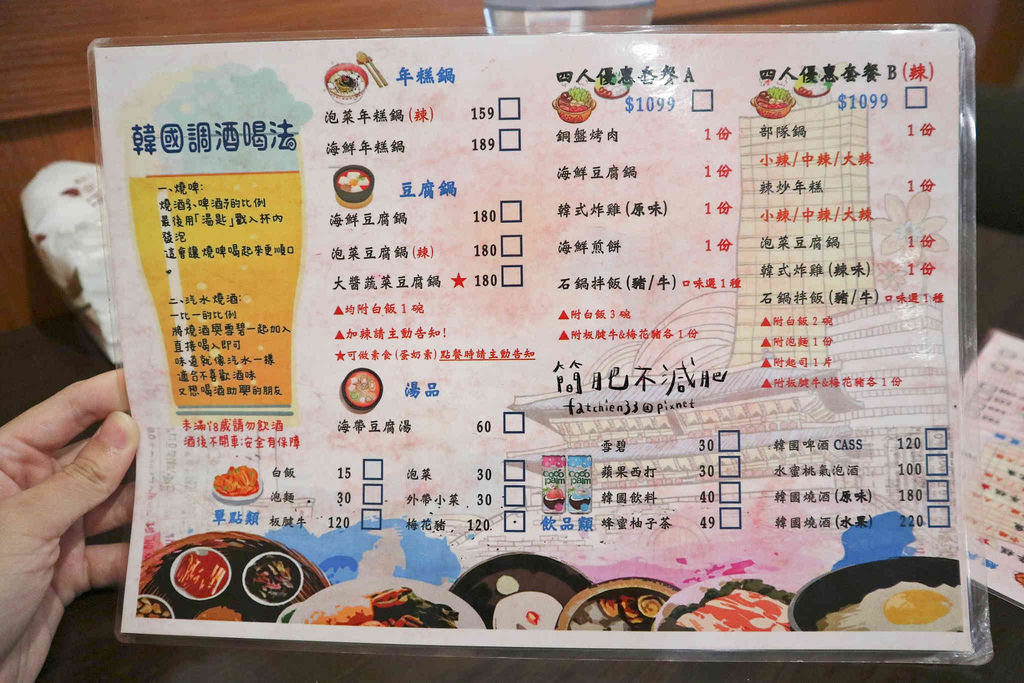 韓國調酒喝法
一、燒啤:
燒酒3:啤酒7的比例
最後用「湯匙」戳入杯內
發泡
這會讓燒啤喝起來更順口
。
二、汽水燒酒:
一比一的比例
將燒酒與雪碧一起加入
直接喝入即可
味道就像汽水一樣
適合不喜歡酒味
又想喝酒助興的朋友
未滿18歲請勿飲酒
酒後不開車;安全有保障
年糕鍋
泡菜年糕鍋(辣) 159
海鮮年糕鍋 189
豆腐鍋
海鮮豆腐鍋 180
泡菜豆腐鍋(辣) 180
大醬蔬菜豆腐鍋 ★ 180
▲均附白飯1碗
▲加辣請主動告知!
★可做素食(蛋奶素)點餐時請主動告知
湯品
海帶豆腐湯 60
四人優惠套餐 A
$1099
銅盤烤肉 1份
海鮮豆腐鍋 1份
韓式炸雞(原味) 1份
海鮮煎餅 1份
石鍋拌飯(豬/牛) 口味選1種
▲附白飯3碗
▲附板腱牛&梅花豬各1份
四人優惠套餐 B(辣)
$1099
部隊鍋 1份
小辣/中辣/大辣
辣炒年糕 1份
小辣/中辣/大辣
泡菜豆腐鍋 1份
韓式炸雞(辣味) 1份
石鍋拌飯(豬/牛) 口味選1種
▲附白飯2碗
▲附泡麵1份
▲附起司1片
▲附板腱牛&梅花豬各1份
簡肥不減肥
fatchien33@pixnet
單點類
白飯 15
泡麵 30
板腱牛 120
泡菜 30
外帶小菜 30
梅花豬 120
coco palm
coco palm
飲品類
雪碧 30
蘋果西打 30
韓國飲料 40
蜂蜜柚子茶 49
韓國啤酒 CASS 120
水蜜桃氣泡酒 100
韓國燒酒(原味) 180
韓國燒酒(水果) 220